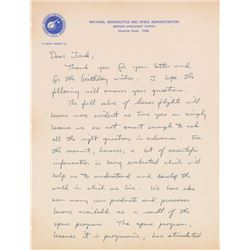 NATIONAL AERONAUTICS AND SPACE ADMINISTRATION
MANNED SPACECRAFT CENTER
Houston, Texas 77058
IN REPLY REFER TO:
Dear Jack,
Thank you for your letter and
for the birthday wishes. I hope the
following will answer your questions.
The full value of lunar flights will
become more evident as time goes on simply
because we are not smart enough to ask
all the right questions in advance. For
the moment, however, a lot of scientific
information is being evaluated which will
help us to understand and develop the
world in which we live. We have also
seen many new products and processes
become available as a result of the
space program. The space program,
because it is progressive, has stimulated